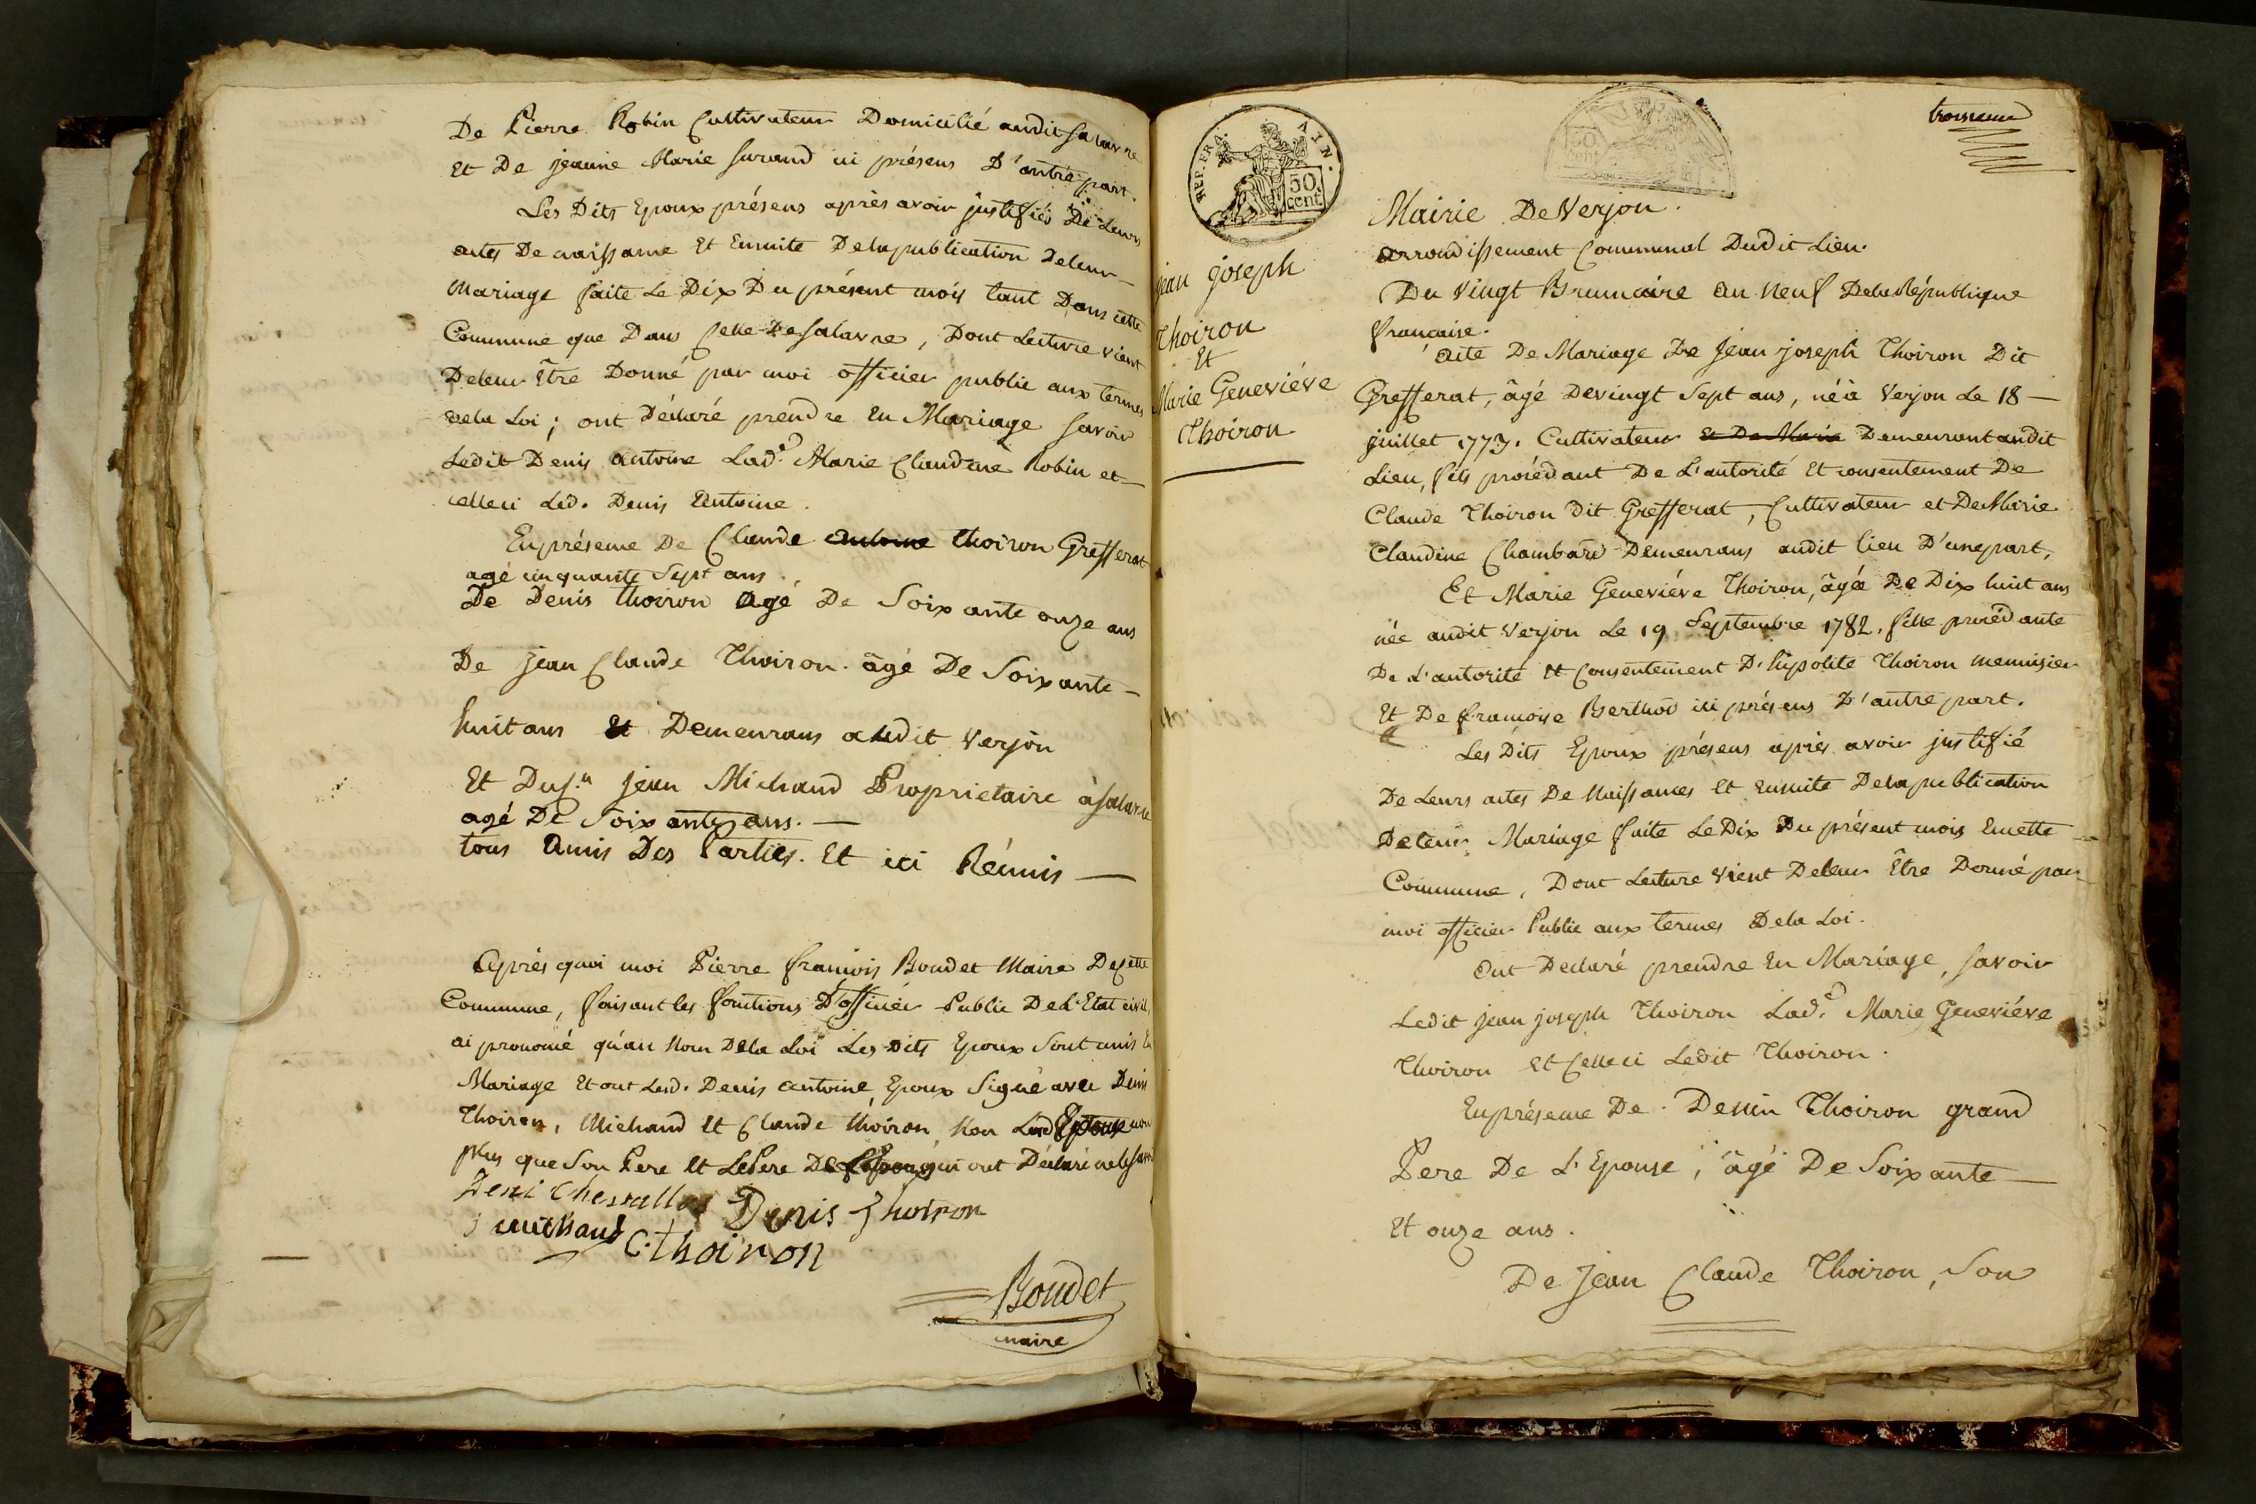 De Pierre Robin Cultivateur Domicilié audit Salavre
Et De jeanne Marie Surand ici présens D'autre part.
Les Dits Epoux présens après avoir justifiés De Leurs
actes De naissance Et Ensuite De la publication De leur
Mariage faite Le Dix Du présent mois tant Dans cette
Commune que Dans Celle De Salavre, Dont Lecture vient
De leur Être Donné par moi officier public aux termes
De la Loi; ont Déclaré prendre En Mariage Savoir
Ledit Denis Antoine Lad.e Marie Claudine Robin et
celleci Led. Denis Antoine.
En présence De Claude Antoine Thoiron Grefferat
agé cinquante Sept ans
De Denis thoiron Agé De Soixante onze ans
De Jean Claude Thoiron. âgé De Soixante
huit ans Et Demeurans audit Verjon
Et Du S.r Jean Michaud Propriétaire à Salavre
agé De Soixante ans.
tous Amis Des Parties. Et ici Réunis
Après quoi moi Pierre François Boudet Maire De Cette
Commune, faisant les fonctions D'officier Public De L'Etat civil,
ai prononcé qu'au Nom De la Loi Les Dits Epoux Sont unis En
Mariage Et ont Led. Denis Antoine, Epoux Signé avec Denis
Thoiron, Michaud Et Claude Thoiron, Non Lad Epouse non
plus que Son Pere Et Le Pere De qui ont Déclaré ne le Savoir
Denis Thoiron
J Michaud C. thoiron
Boudet
maire
REP. FRA. AIN.
50 cent
jean joseph
Thoiron
Et
Marie Geneviéve
Thoiron
50 cent
troisieme
Mairie De Verjon.
Arrondissement Communal Dudit Lieu.
Du Vingt Brumaire An Neuf De la République
française.
Acte De Mariage De Jean joseph Thoiron Dit
Grefferat, âgé De vingt Sept ans, né à Verjon Le 18
juillet 1773. Cultivateur Et De Marie Demeurant audit
Lieu, fils procédant De L'autorité Et consentement De
Claude Thoiron Dit Grefferat, Cultivateur et De Marie
Claudine Chambard Demeurans audit lieu D'une part,
Et Marie Geneviéve Thoiron, âgée De Dix huit ans
née audit Verjon Le 19 Septembre 1782. fille procédante
De L'autorité Et Consentement D'hipolite Thoiron menuisier
Et De françoise Berthod ici présens D'autre part.
Les Dits Epoux présens après avoir justifié
De Leurs actes De Naissances Et ensuite De la publication
De leur Mariage faite Le Dix Du présent mois En cette
Commune, Dont Lecture vient De leur Être Donné par
moi officier Public aux termes De la Loi.
Ont Declaré prendre En Mariage, Savoir
Ledit jean joseph Thoiron Lad.e Marie Geneviéve
Thoiron Et Celleci Ledit Thoiron.
En présence De Denin Thoiron grand
Pere De L'Epouse, âgé De Soixante
Et onze ans.
De Jean Claude Thoiron, Son